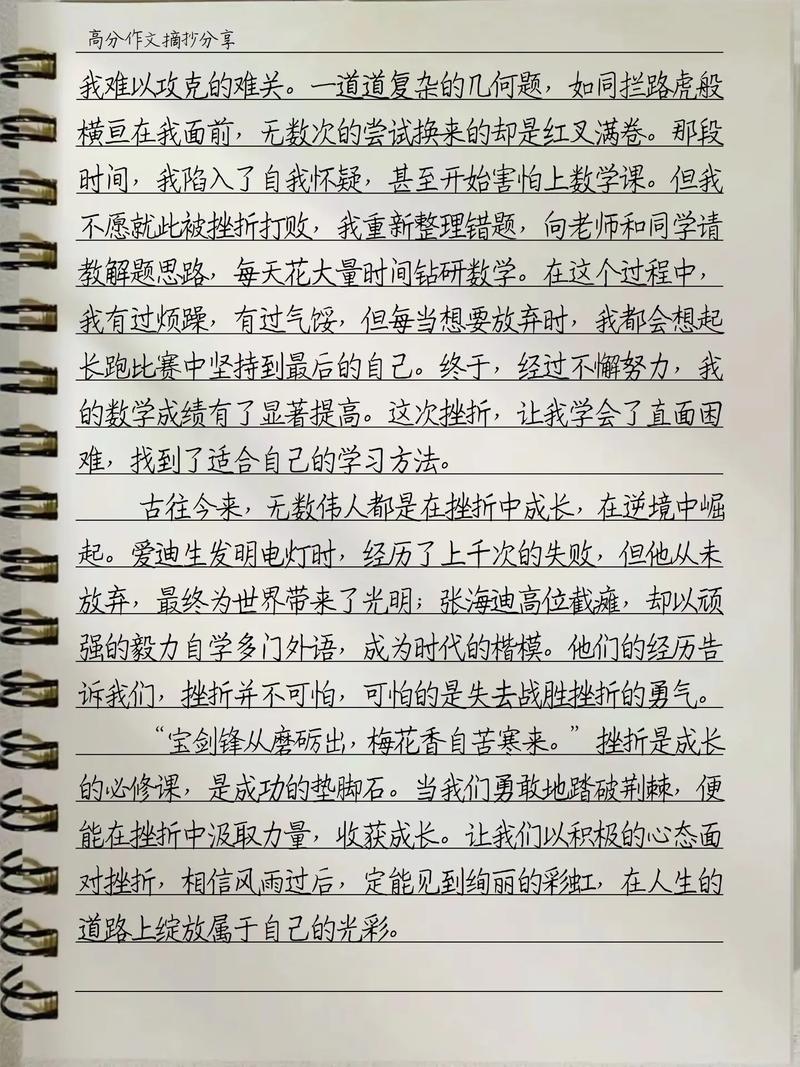 高分作文摘抄分享
我难以攻克的难关。一道道复杂的几何题，如同拦路虎般
横亘在我面前，无数次的尝试换来的却是红叉满卷。那段
时间，我陷入了自我怀疑，甚至开始害怕上数学课。但我
不愿就此被挫折打败，我重新整理错题，向老师和同学请
教解题思路，每天花大量时间钻研数学。在这个过程中，
我有过烦躁，有过气馁，但每当想要放弃时，我都会想起
长跑比赛中坚持到最后的自己。终于，经过不懈努力，我
的数学成绩有了显著提高。这次挫折，让我学会了直面困
难，找到了适合自己的学习方法。
古往今来，无数伟人都是在挫折中成长，在逆境中崛
起。爱迪生发明电灯时，经历了上千次的失败，但他从未
放弃，最终为世界带来了光明；张海迪高位截瘫，却以顽
强的毅力自学多门外语，成为时代的楷模。他们的经历告
诉我们，挫折并不可怕，可怕的是失去战胜挫折的勇气。
“宝剑锋从磨砺出，梅花香自苦寒来。”挫折是成长
的必修课，是成功的垫脚石。当我们勇敢地踏破荆棘，便
能在挫折中汲取力量，收获成长。让我们以积极的心态面
对挫折，相信风雨过后，定能见到绚丽的彩虹，在人生的
道路上绽放属于自己的光彩。